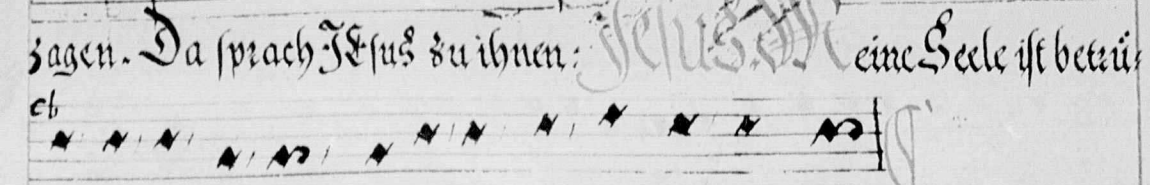 zagen. Da sprach JEsus zu ihnen: Jesus. Meine Seele ist betrü-